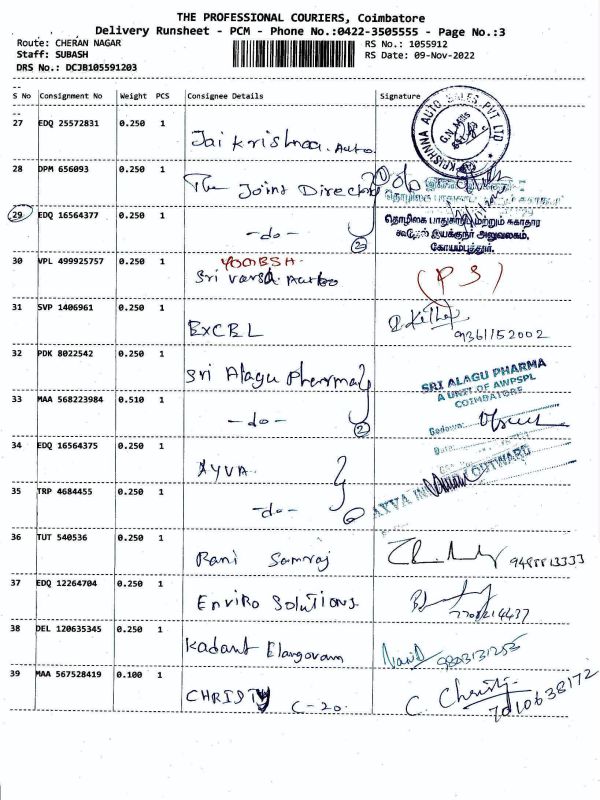 THE PROFESSIONAL COURIERS, Coimbatore
Delivery Runsheet - PCM - Phone No.:0422-3505555 - Page No.:3
Route: CHERAN NAGAR RS No.: 1055912
Staff: SUBASH RS Date: 09-Nov-2022
DRS No.: DCJB105591203
S No Consignment No Weight PCS Consignee Details Signature
27 EDQ 25572831 0.250 1
Jai Krishnaa. Auto
KRISHNNA AUTO SALES PVT LTD
G.N Mills
28 DPM 656093 0.250 1
The Joint Director
29 EDQ 16564377 0.250 1
-do- 2
தொழிலக பாதுகாப்பு மற்றும் சுகாதார
கூடுதல் இயக்குநர் அலுவலகம்,
கோயம்புத்தூர்.
30 VPL 499925757 0.250 1
Sri Varsa Auto
(PS)
31 SVP 1406961 0.250 1
ExCEL
9361152002
32 PDK 8022542 0.250 1
Sri Alagu Pharma
SRI ALAGU PHARMA
A UNIT OF AWPSPL
COIMBATORE
33 MAA 568223984 0.510 1
-do- 2
Godown:
Date:
34 EDQ 16564375 0.250 1
AYVA
OUTWARD
35 TRP 4684455 0.250 1
-do-
AYVA
36 TUT 540536 0.250 1
Rani Samraj
9488813333
37 EDQ 12264704 0.250 1
Enviro Solutions
7708214437
38 DEL 120635345 0.250 1
Kadant Elangovan
39 MAA 567528419 0.100 1
CHRISTY C-20.
C. Christy
7010638172